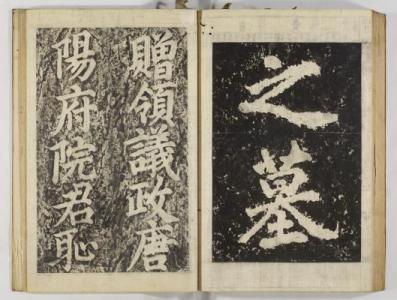 之墓
贈領議政唐
陽府院君恥